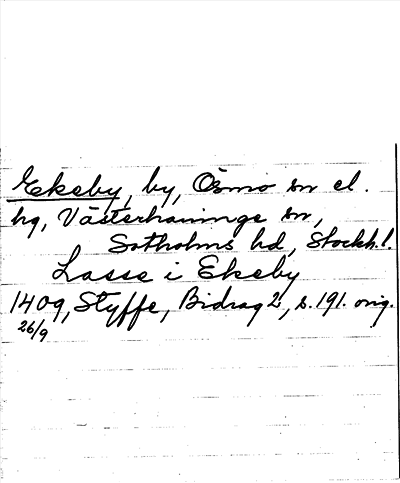 Ekeby, by, Ösmo sn el.
hg, Västerhaninge sn,
Sotholms hd, Stockh.l.
Lasse i Ekeby
1409, Styffe, Bidrag 2, s. 191. orig.
26/9